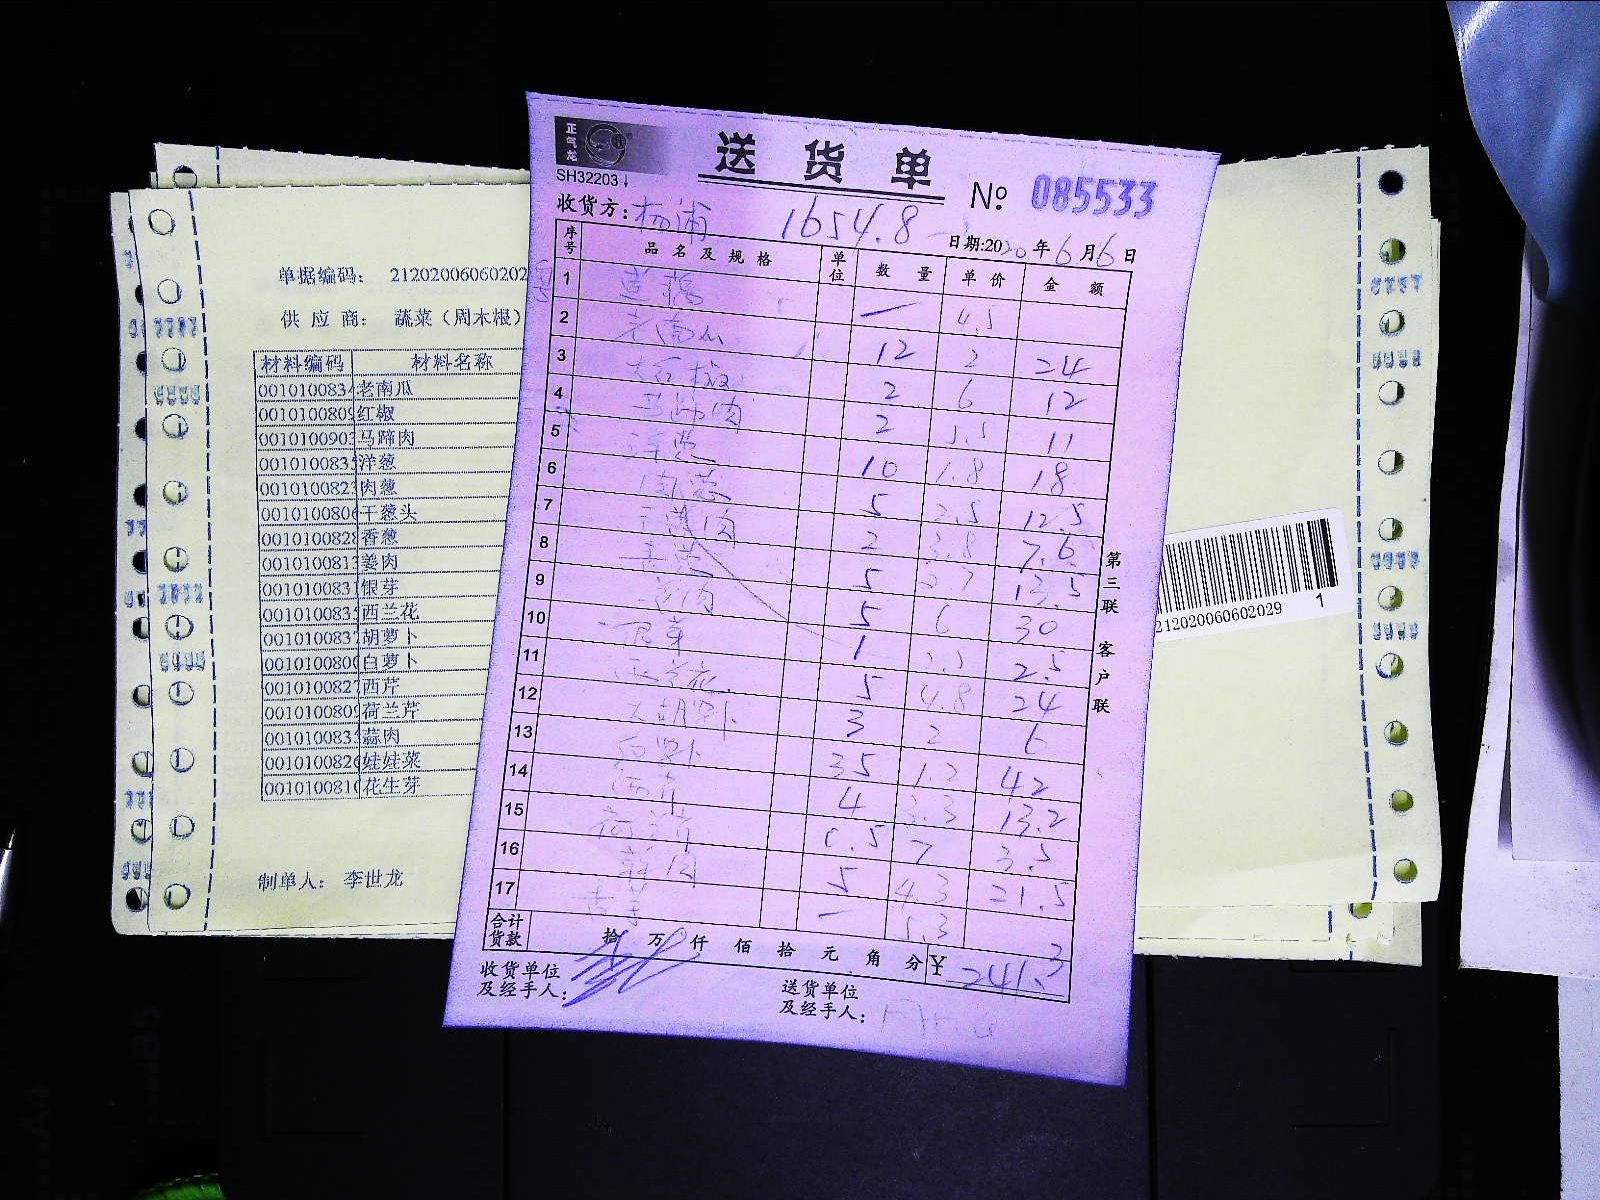 单据编码： 21202006060202
供 应 商： 蔬菜（周木根）
材料编码 材料名称
001010083 老南瓜
001010080 红椒
001010090 马蹄肉
001010083 洋葱
001010082 肉葱
001010080 干葱头
001010082 香葱
001010081 姜肉
001010083 银芽
001010083 西兰花
001010083 胡萝卜
001010080 白萝卜
001010082 西芹
001010080 荷兰芹
001010083 蒜肉
001010082 娃娃菜
001010081 花生芽
制单人： 李世龙
正气龙
SH32203
送 货 单
№ 085533
收货方：杨浦 1654.8
日期：2020年6月6日
序号 品名及规格 单位 数量 单价 金额
1 莲藕 一 4.5
2 老南瓜 12 2 24
3 大红椒 2 6 12
4 马蹄肉 2 5.5 11
5 洋葱 10 1.8 18
6 肉葱 5 2.5 12.5
7 干葱肉 2 3.8 7.6
8 香葱 5 2.7 13.5
9 姜肉 5 6 30
10 银芽 1 2.5 2.5
11 西兰花 5 4.8 24
12 大胡萝卜 3 2 6
13 白萝卜 35 1.2 42
14 西芹 4 3.3 13.2
15 荷兰芹 0.5 7 3.5
16 蒜肉 5 4.3 21.5
17 一 5.3
合计货款 拾 万 仟 佰 拾 元 角 分 ¥ 241.3
收货单位及经手人：
送货单位及经手人：
第三联 客户联
212020060602029 1